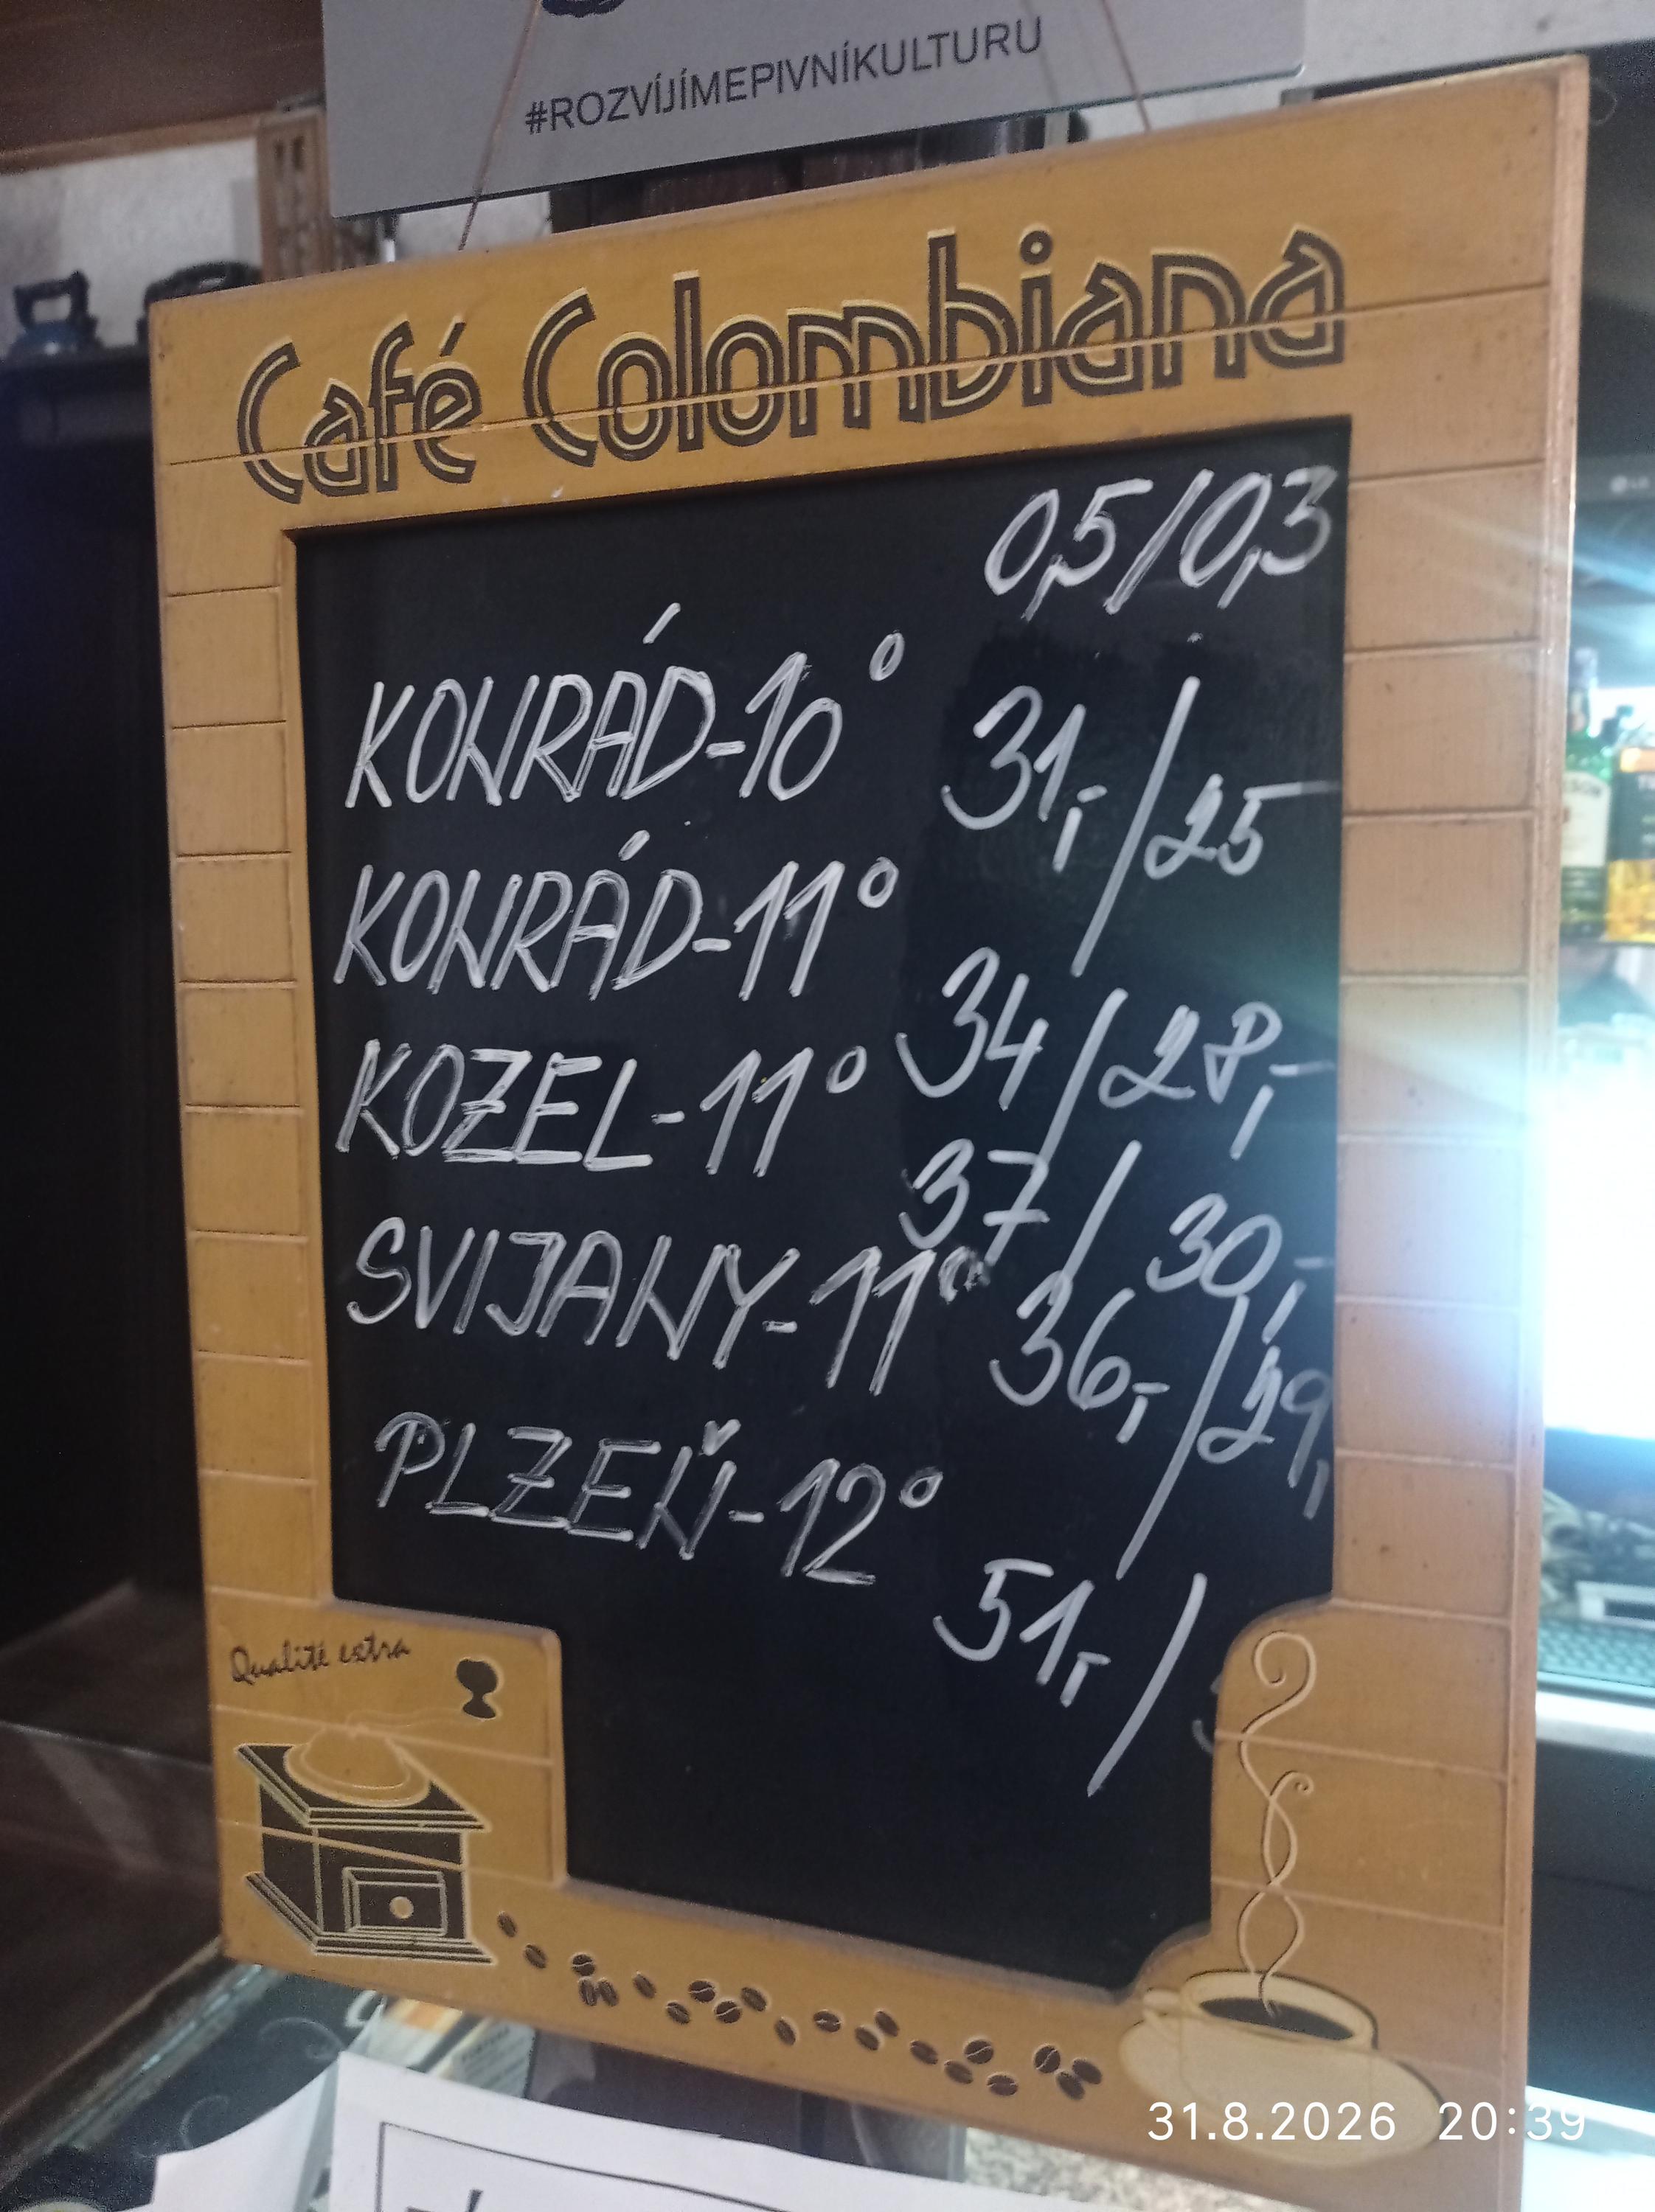 #ROZVÍJÍMEPIVNÍKULTURU
Café Colombiana
0,5/0,3
KONRÁD-10° 31,-/25
KONRÁD-11° 34/28,-
KOZEL-11° 37/30,-
SVIJANY-11° 36,-/29,
PLZEŇ-12° 51,-/
Qualité extra
31.8.2026 20:39